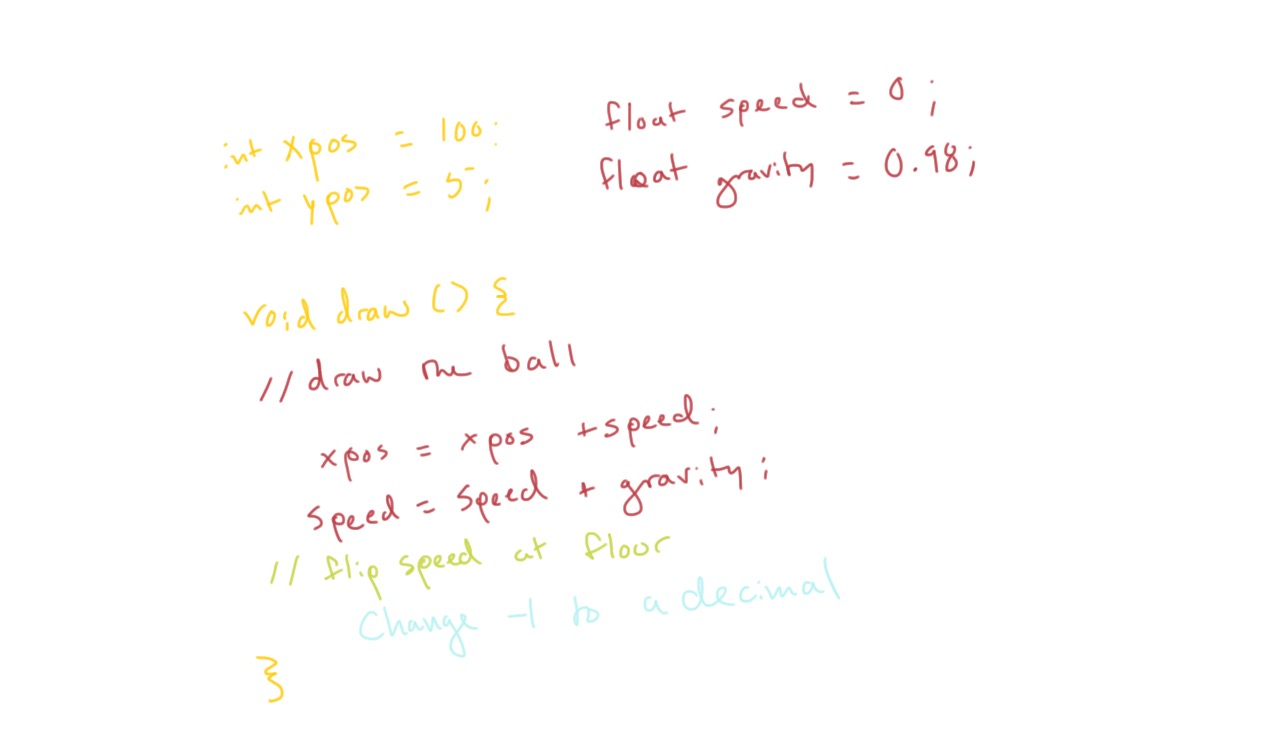 int xpos = 100:
int ypos = 5;
float speed = 0;
float gravity = 0.98;
void draw () {
// draw the ball
xpos = xpos + speed;
speed = speed + gravity;
// flip speed at floor
Change -1 to a decimal
}